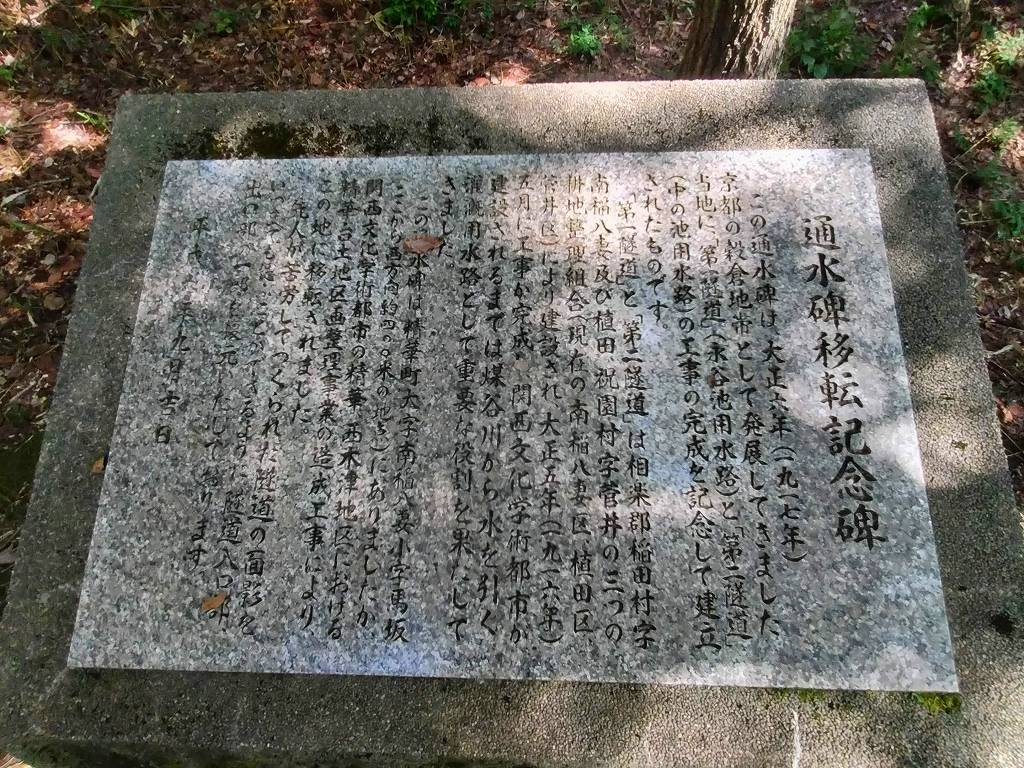 通水碑移転記念碑
この通水碑は、大正六年(一九一七年)
京都の穀倉地帯として発展してきました
当地に「第一隧道」(永谷池用水路)と「第二隧道」
(中の池用水路)の工事の完成を記念して建立
されたものです。
「第一隧道」と「第二隧道」は相楽郡稲田村字
南稲八妻及び植田、祝園村字菅井の三つの
耕地整理組合(現在の南稲八妻区、植田区、
菅井区)により建設され、大正五年(一九一六年)
五月に工事が完成、関西文化学術都市が
建設されるまでは煤谷川から水を引く
灌漑用水路として重要な役割を果たして
きました。
この通水碑は、精華町大字南稲八妻小字馬坂
(ここから西方向約四〇〇米の地点)にありましたが
関西文化学術都市の精華・西木津地区における
精華台土地区画整理事業の造成工事により、
この地に移転されました。
先人が苦労してつくられた隧道の面影を
隧道入口部、
一部を復元いたしております。
年九月吉日